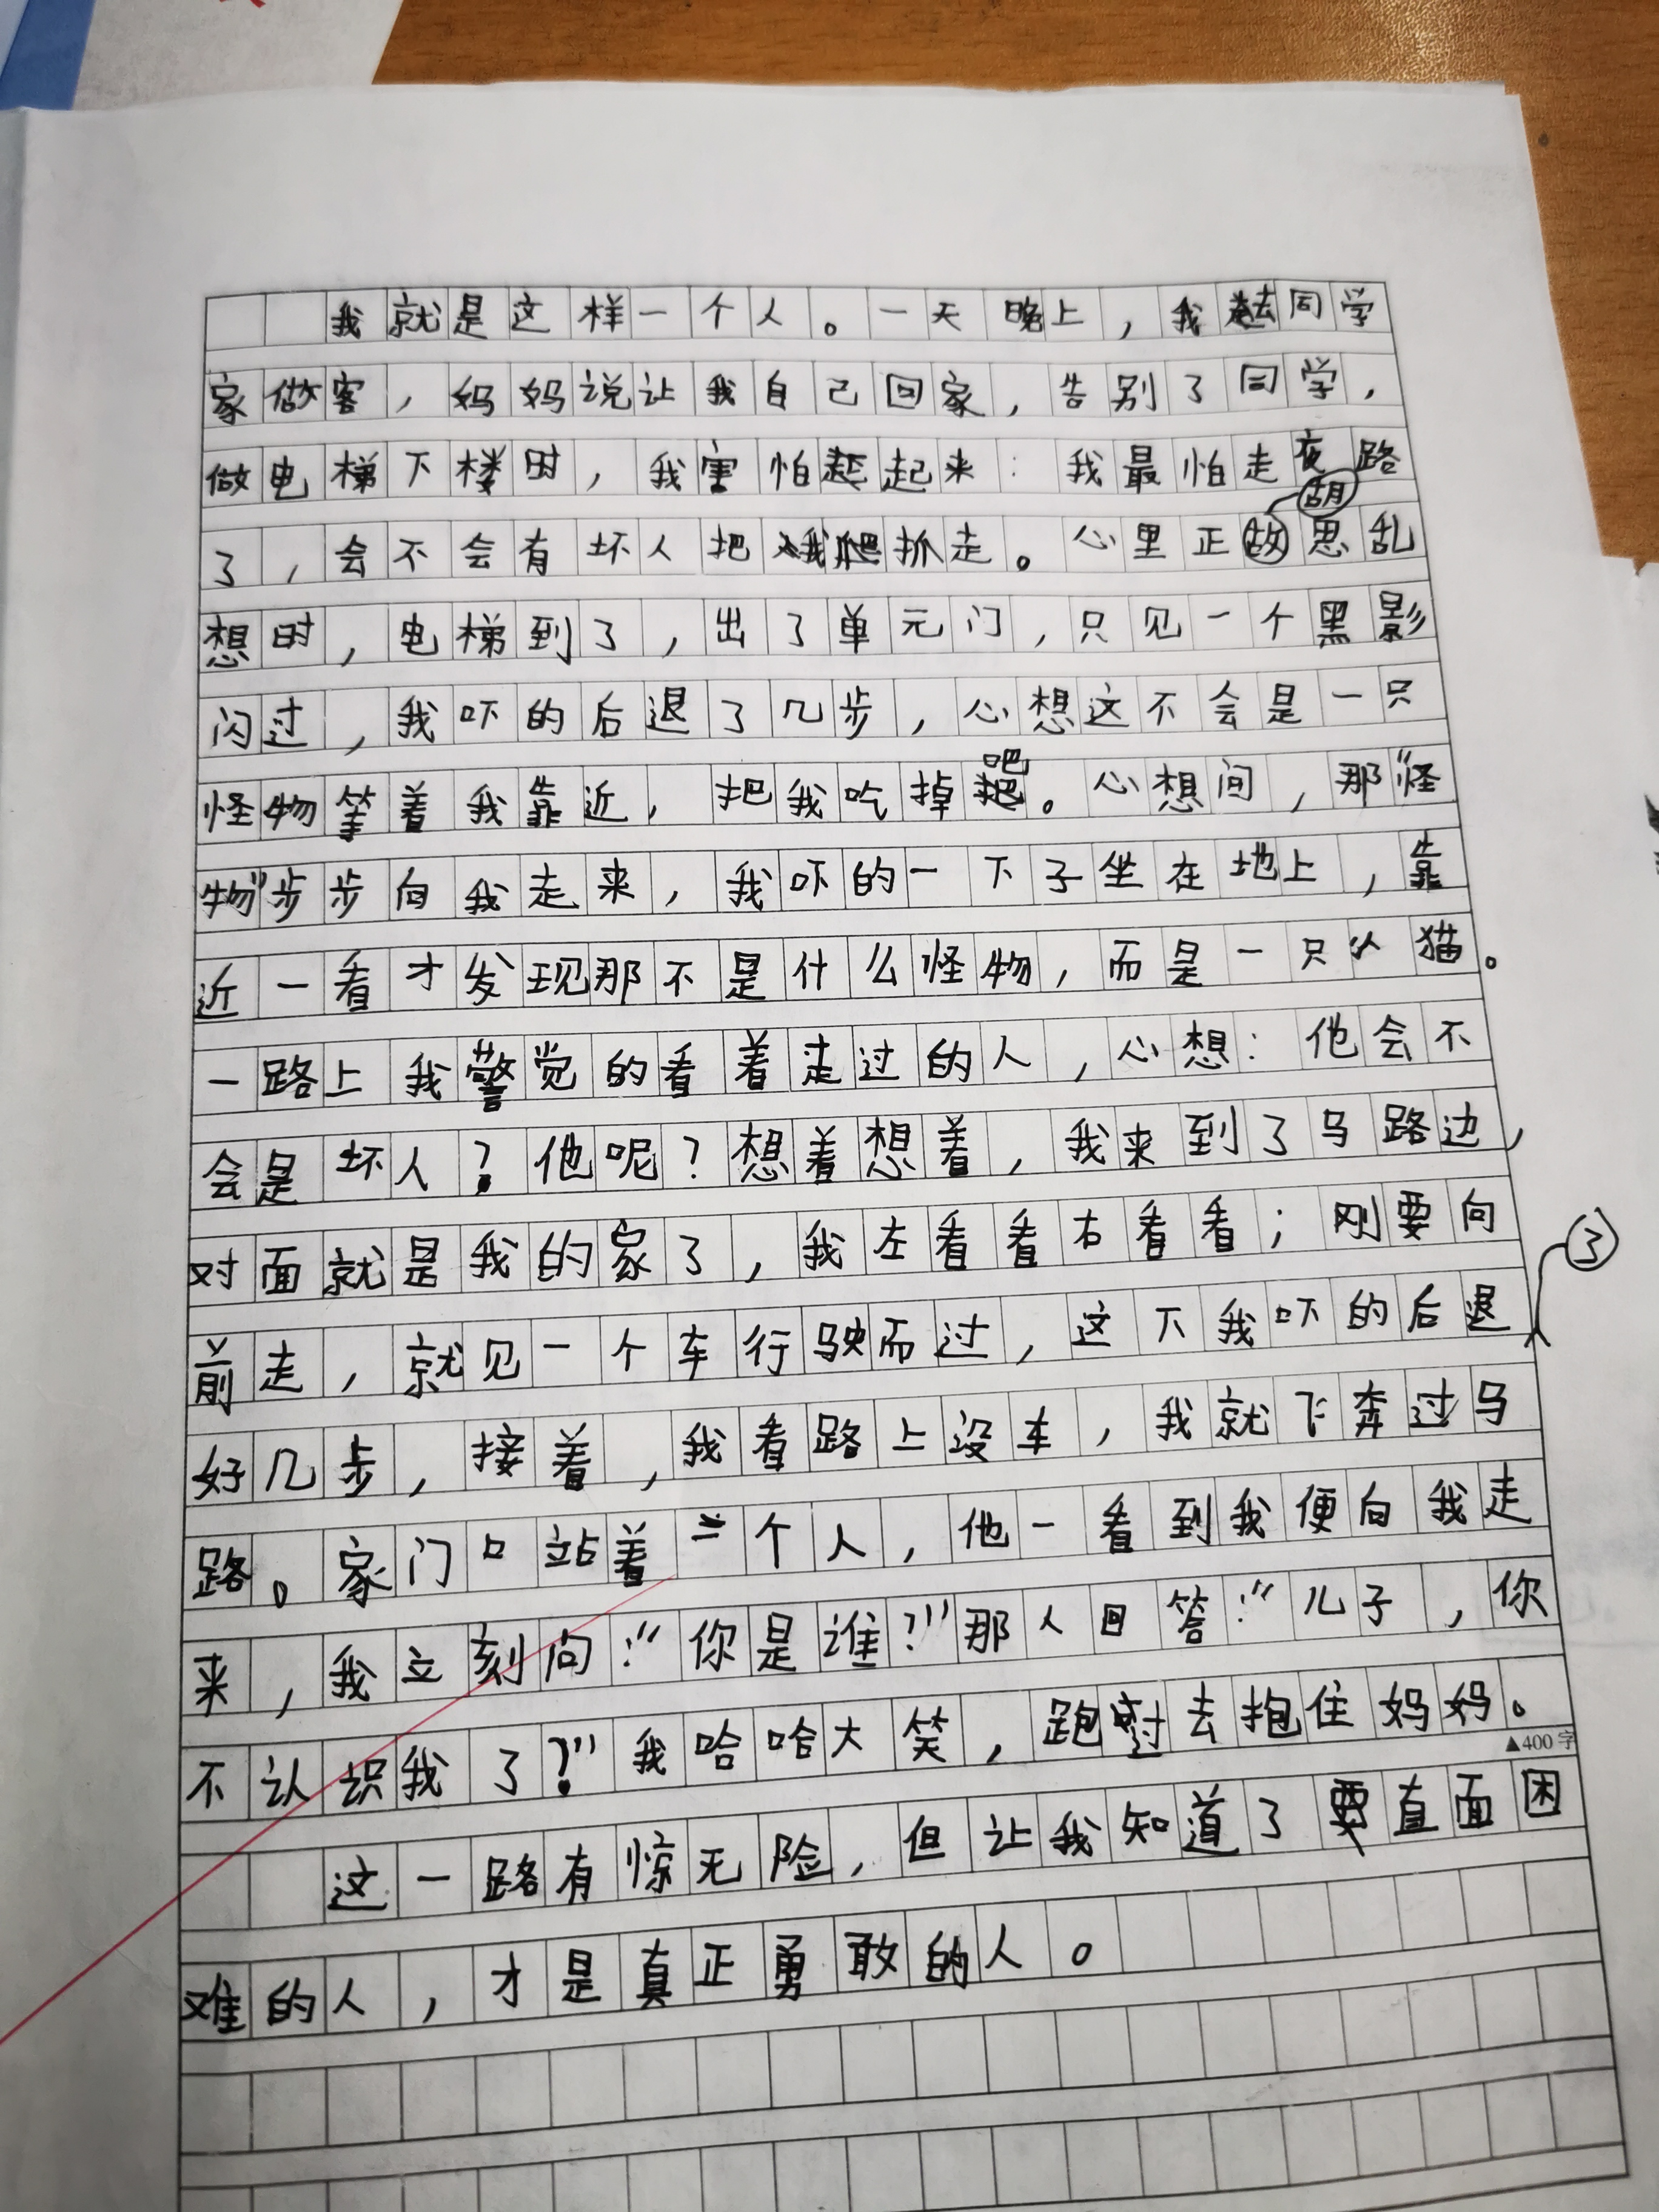 我就是这样一个人。一天晚上，我去同学
家做客，妈妈说让我自己回家，告别了同学，
做电梯下楼时，我害怕起来：我最怕走夜路
了，会不会有坏人把我抓走。心里正胡思乱
想时，电梯到了，出了单元门，只见一个黑影
闪过，我吓的后退了几步，心想这不会是一只
怪物等着我靠近，把我吃掉吧。心想间，那“怪
物”步步向我走来，我吓的一下子坐在地上，靠
近一看才发现那不是什么怪物，而是一只小猫。
一路上我警觉的看着走过的人，心想：他会不
会是坏人？他呢？想着想着，我来到了马路边，
对面就是我的家了，我左看看右看看；刚要向
前走，就见一个车行驶而过，这下我吓的后退了
好几步，接着，我看路上没车，我就飞奔过马
路。家门口站着一个人，他一看到我便向我走
来，我立刻问：“你是谁？”那人回答：“儿子，你
不认识我了？”我哈哈大笑，跑过去抱住妈妈。
▲400字
这一路有惊无险，但让我知道了要直面困
难的人，才是真正勇敢的人。